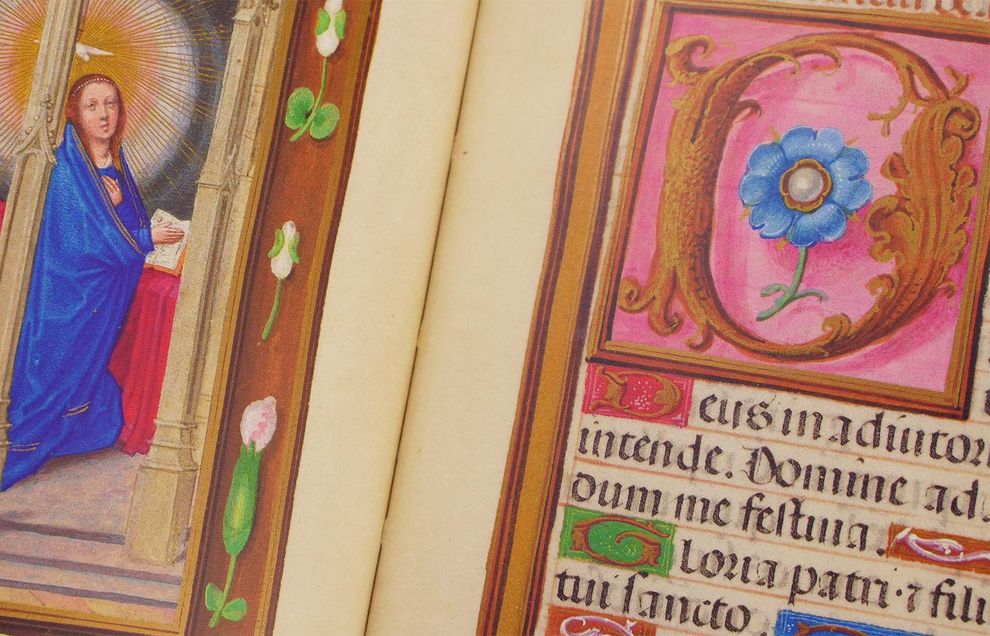 Deus in adiutor
intende. Domine ad
dum me festina.
Gloria patri · ⁊ fili
tui sancto